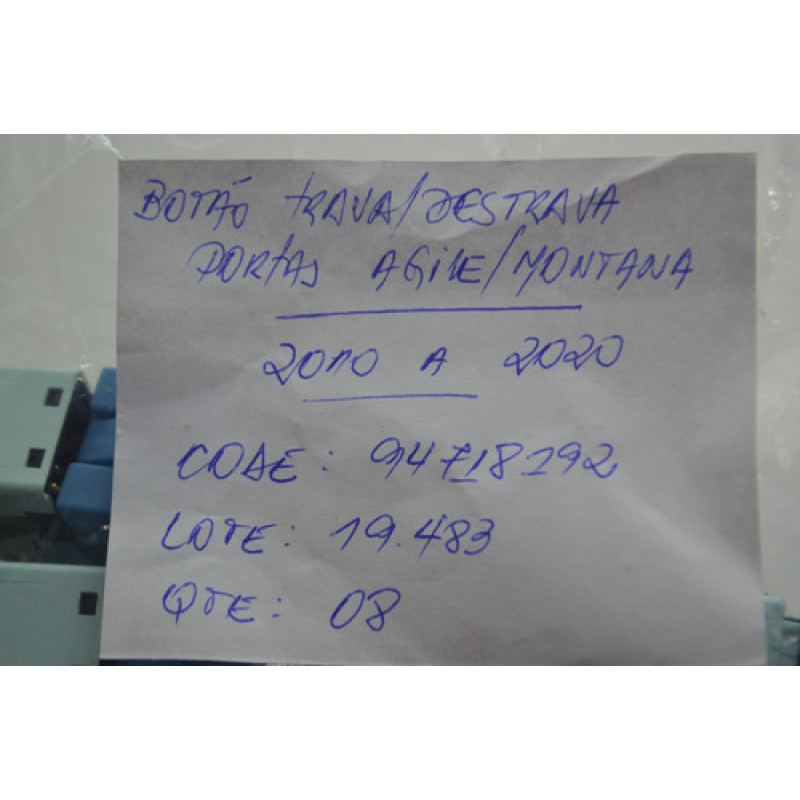 BOTÃO TRAVA/DESTRAVA
PORTAS AGILE/MONTANA
2010 A 2020
CODE: 94718192
LOTE: 19.483
QTE: 08